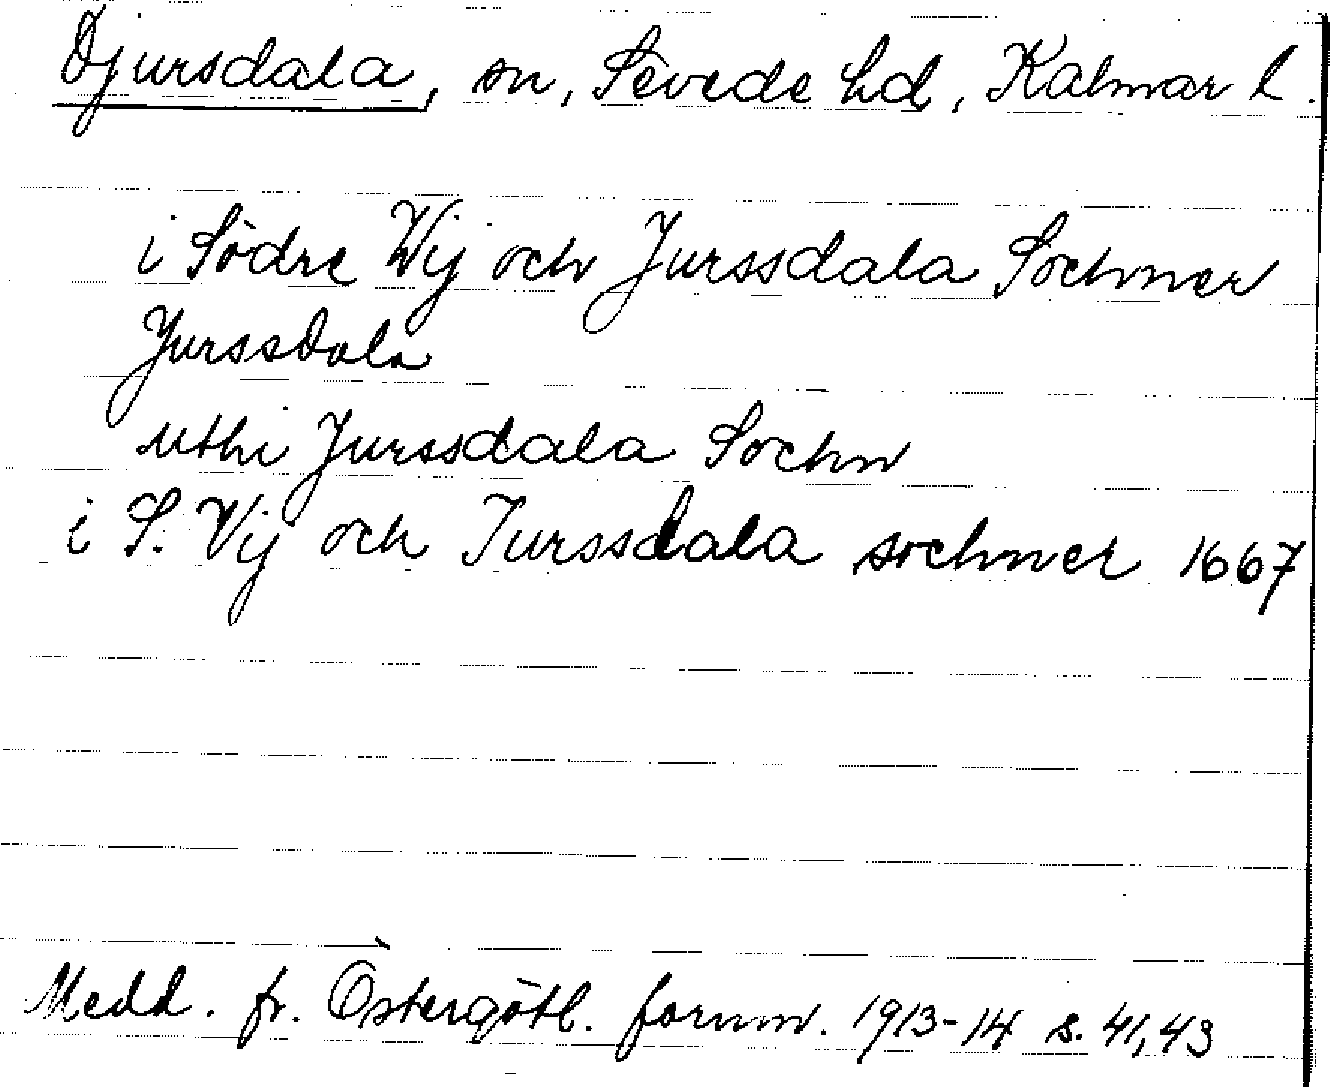 Djursdala, sn, Sevede hd, Kalmar l.
i Södre Wij och Jurssdala Sochner
Jurssdala
uthi Jurssdala Sochn
i S. Vij och Jurssdala sochner 1667
Medd. fr. Östergötl. fornm. 1913-14 s. 41,43